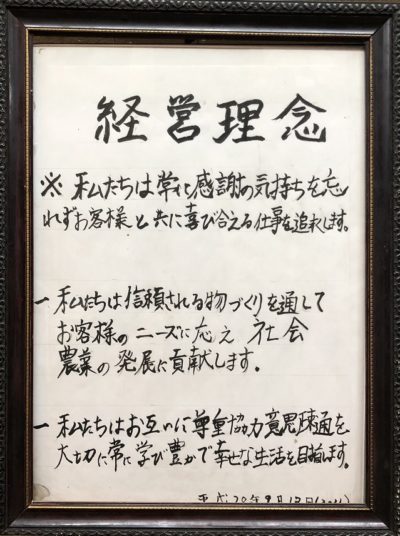 経営理念
※ 私たちは常に感謝の気持ちを忘
れずお客様と共に喜び合える仕事を追求します。
一 私たちは信頼される物づくりを通して
お客様のニーズに応え 社会
農業の発展に貢献します。
一 私たちはお互いに尊重協力意思疎通を
大切に常に学び豊かで幸せな生活を目指します。
平成20年9月